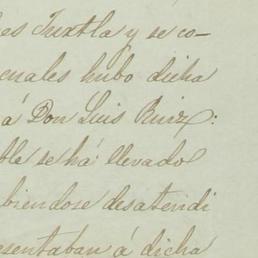 es Tuxtla y se co-
enales hubo dicha
á Don Luis Ruiz:
ble se há llevado
biendose desatendi
esentaban á dicha